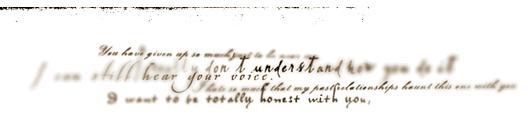 You have given up so much just to be
I really don't understand how you do it
I can still hear your voice.
I hate so much that my past relationships haunt this one with you
I want to be totally honest with you,